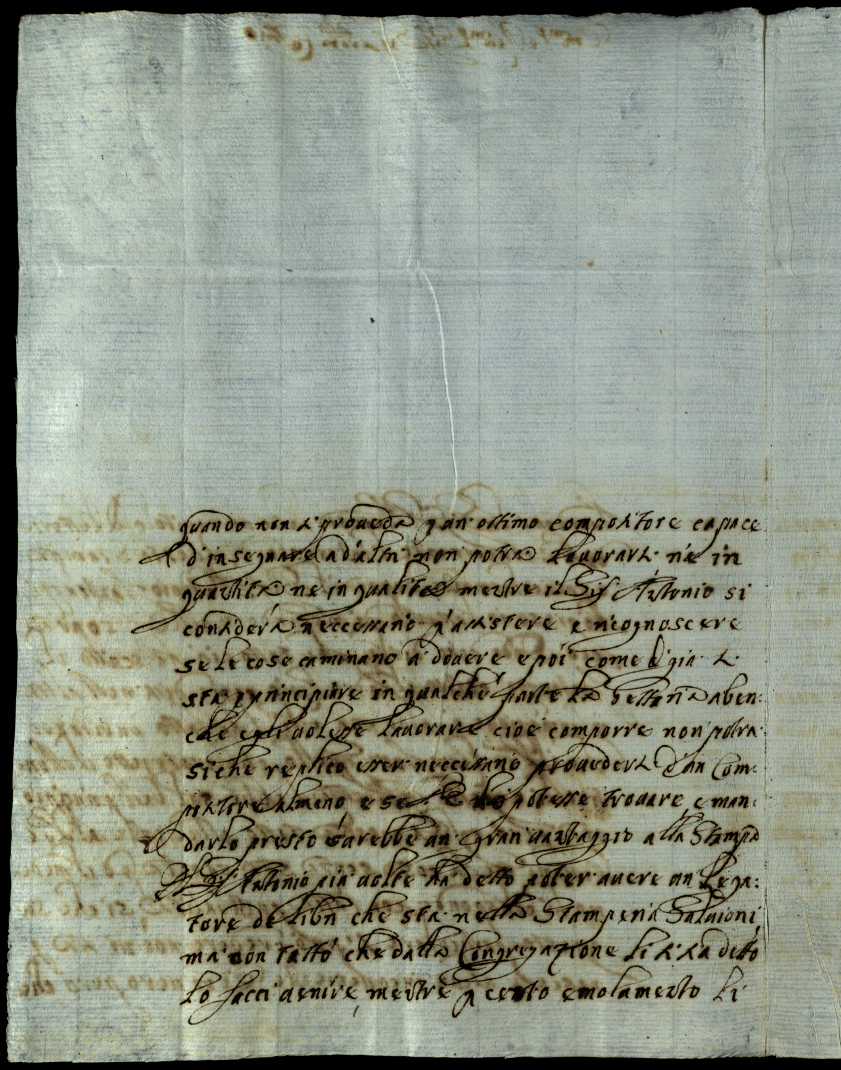 quando non si proveda d'un ottimo compositore capace
d'insegnare ad'altri non potrà lavorarsi ne in
quantità ne in qualità mentre il Sig.r Antonio si
considerà neccessario p assistere e ricognoscere
se le cose caminano à dovere e poi come già si
sta p principiare in qualche parte la aben:
che egli volesse lavorare cioè comporre non potrà
siche replico esser neccessario provedersi d'un Com:
positore almeno e se si potesse trovare e man:
darlo presto sarebbe un gran vantaggio alla Stampa
Il Sig.r Antonio più volte hà detto poter avere un Lega:
tore de libri che sta nella Stamperia Salvioni
ma con tutto che dalla Congregazione li si sia detto
lo facci venire, mentre p certo emolumento li